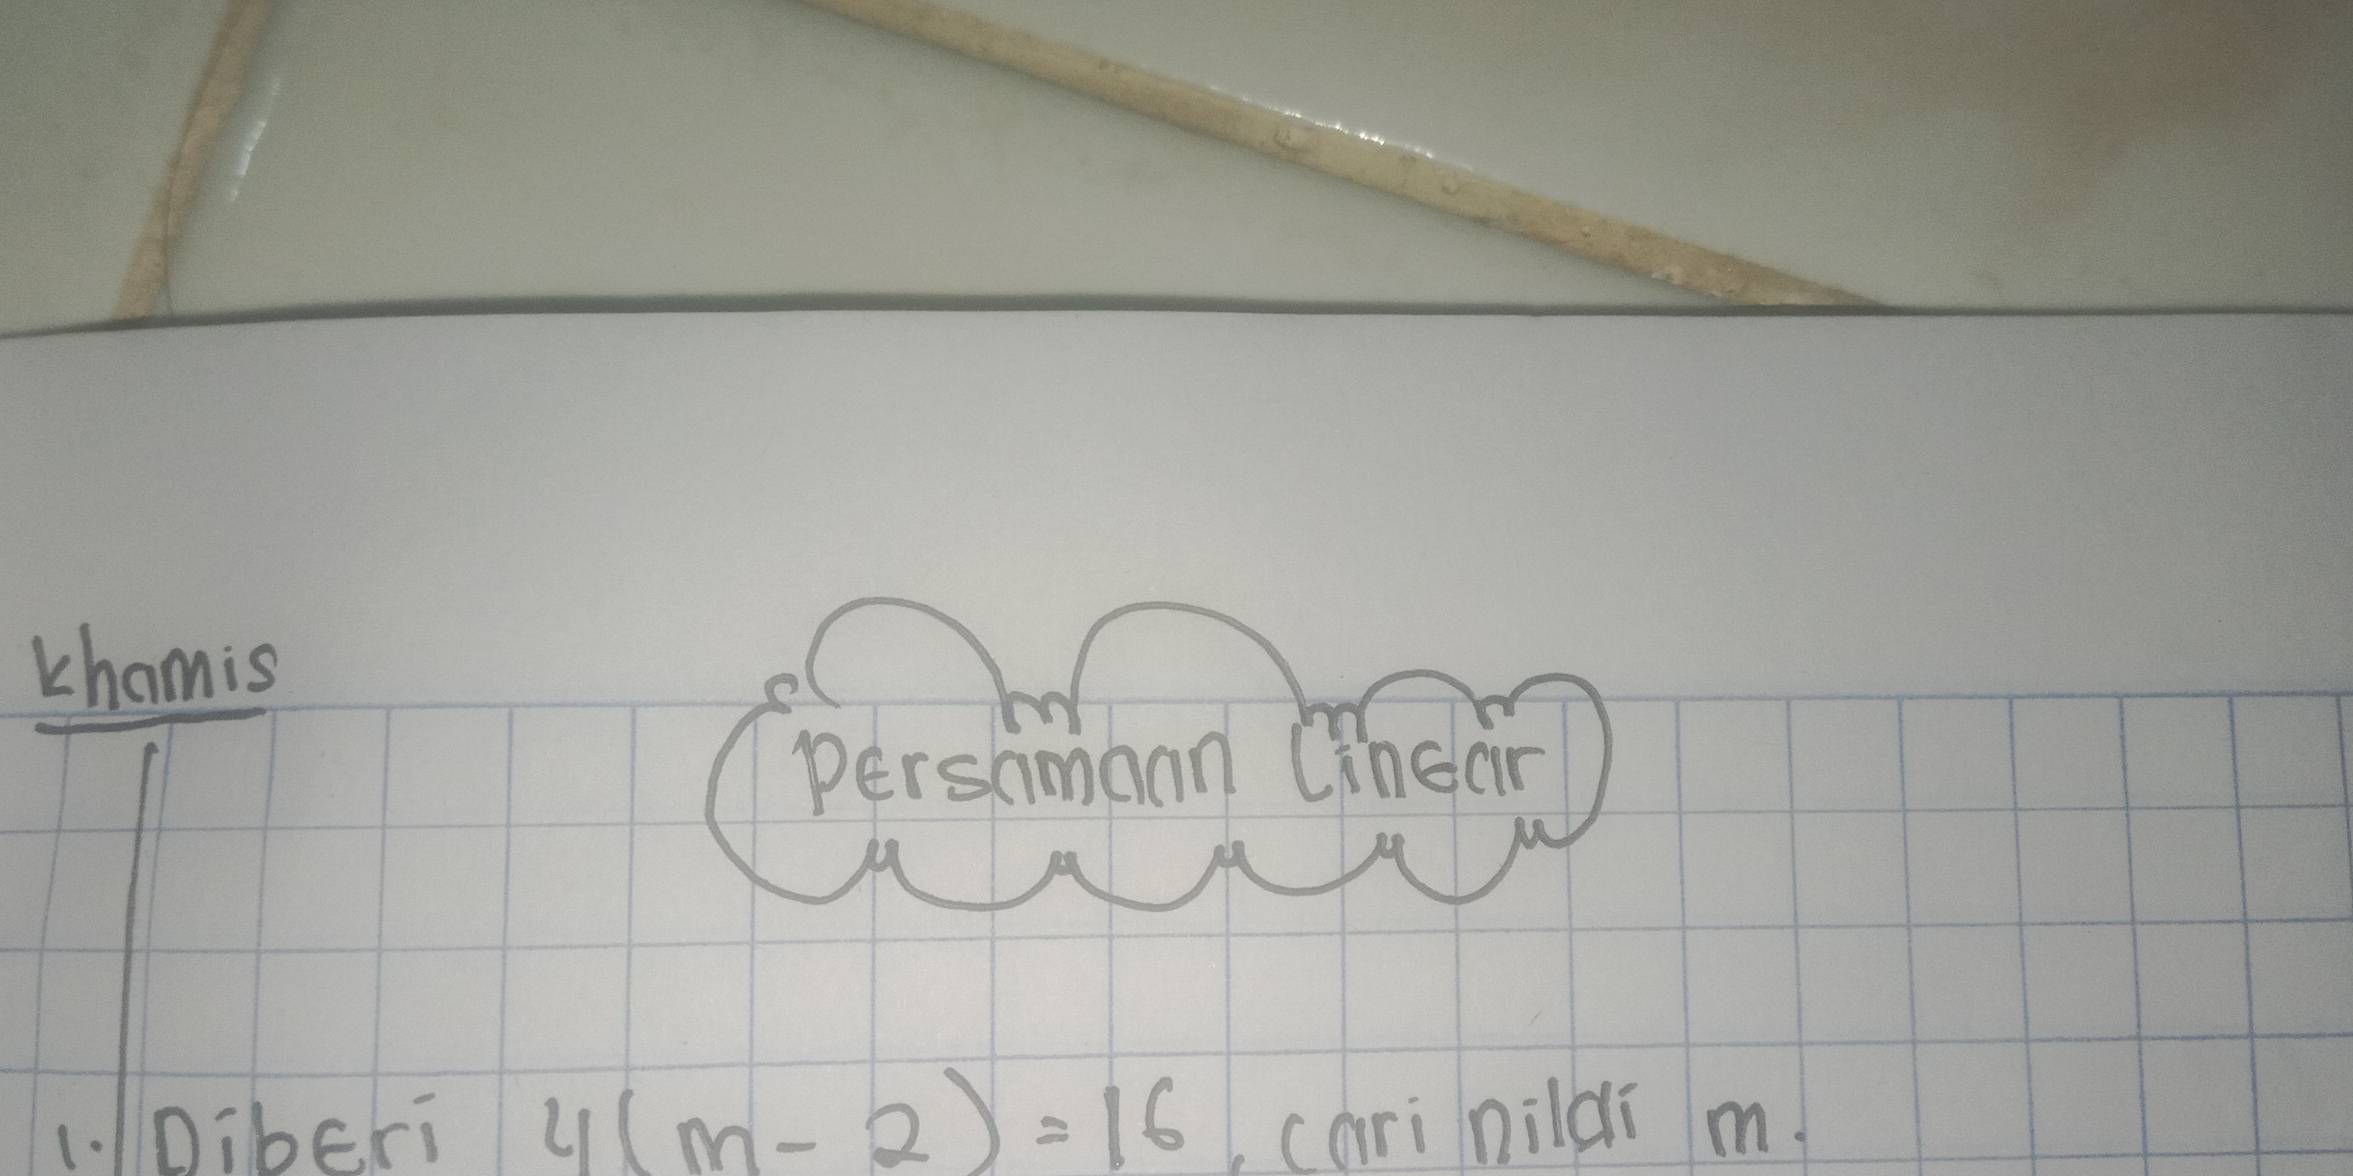 Khamis
Persamaan Linear
1. Diberi 4(m - 2) = 16, cari nilai m.